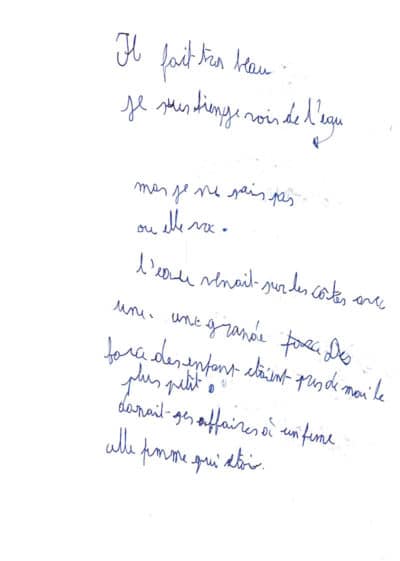 Il fait tres beau.
je suis bien je vois de l'equ
mas je ne sais pas
ou elle va.
l'eau venait sur les côtes avec
une. une grande force Des
force des enfant etaient pres de moi le
plus petit.
donait ses affaires à un fme
elle fmme qui etoi.